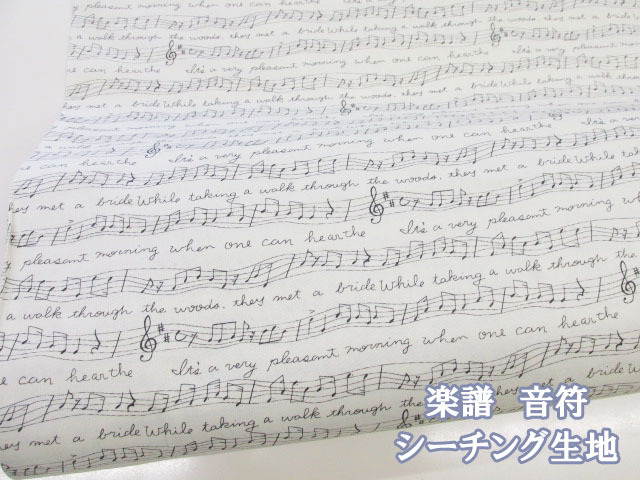 pleasant morning when one can hearthe It's a very pleasant morning when
a walk through the woods, they met a bride While taking a walk through
one can hearthe It's a very pleasant morning when one can hearthe
they met a bride While taking a walk through the woods, they met a bride While taking
one can hearthe It's a very pleasant morning when one can hearthe
they met a bride While taking a walk through the woods, they met a bride While
pleasant morning when one can hearthe It's a very pleasant morning
a walk through the woods, they met a bride While taking a walk through the
one can hearthe It's a very pleasant morning when one can hearthe
met a bride While taking a walk through the woods, they met a bride
楽譜 音符
シーチング生地